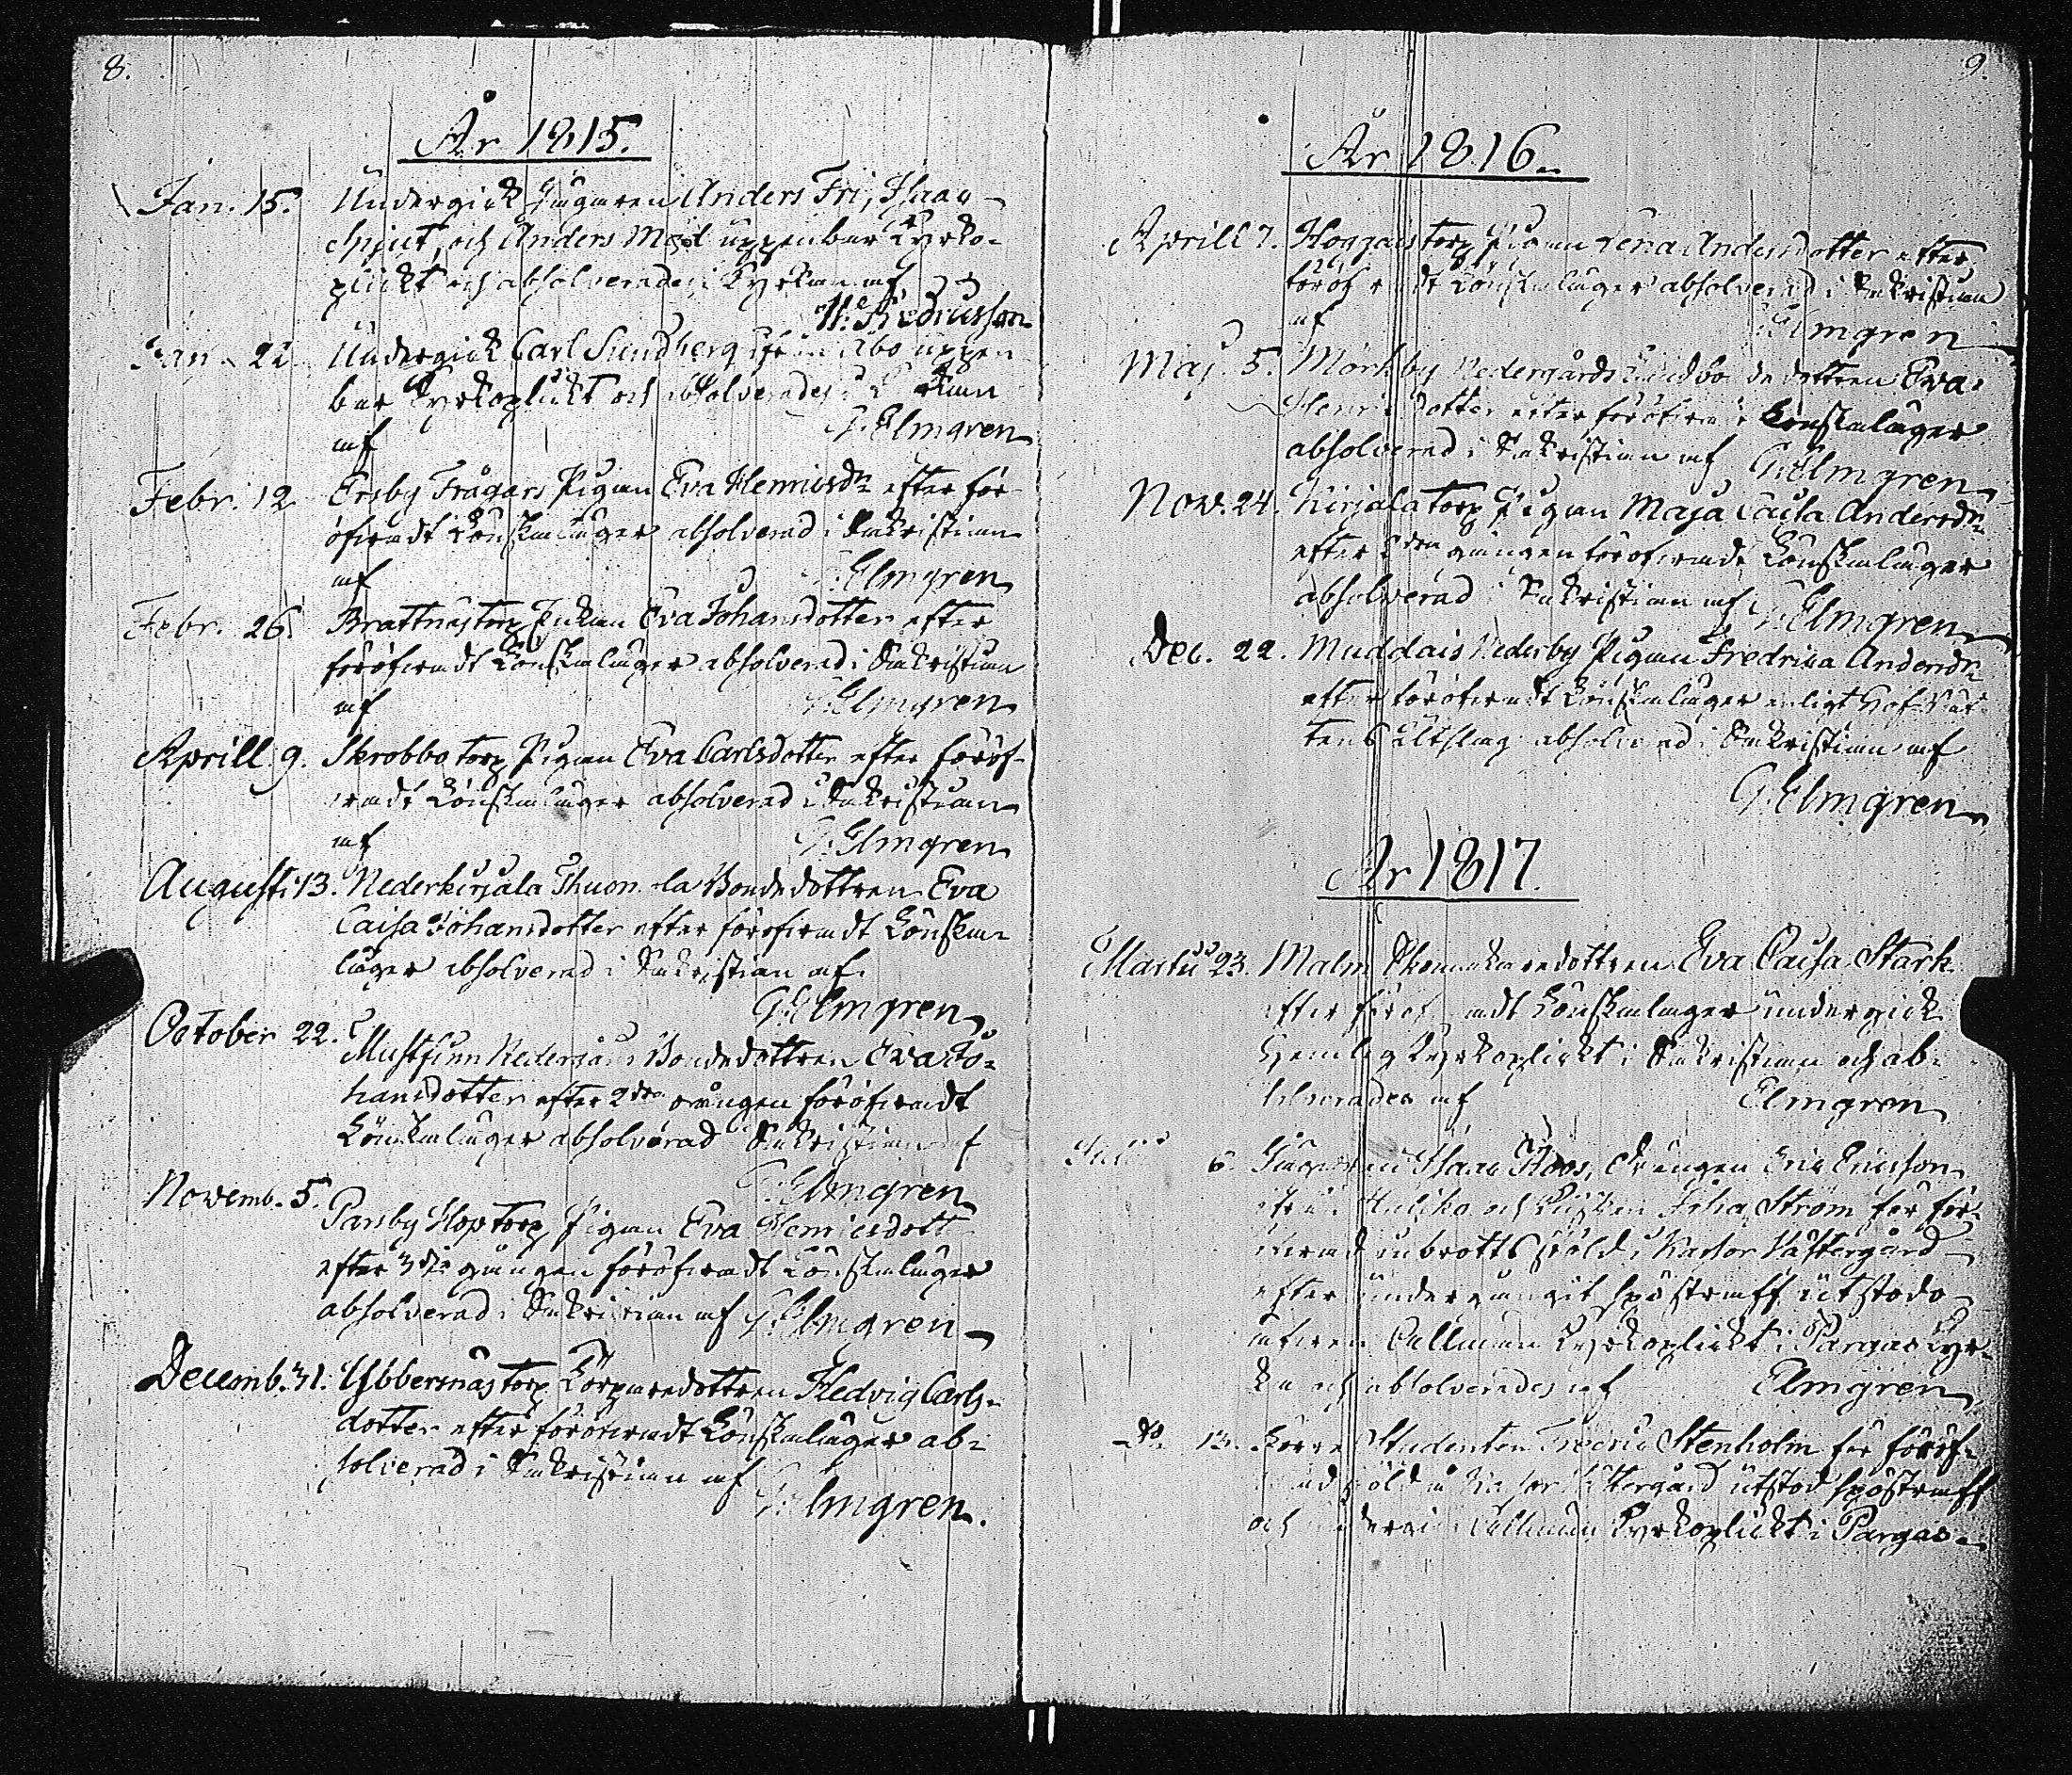 8.
År 1815.
Jan. 15. Undergick Jungmannen Anders Fri, Isaac
Spjut, och Anders Mod uppenbar Kyrko-
plickt och absolverades i Kyrkan af
H. Fredricsson
Jan. 22. Undergick Carl Sundberg ifrån Åbo uppen-
bar Kyrkoplickt och absolverades i Kyrkan
af G. Elmgren
Febr. 12. Ersby Frågars Pigan Eva Henricsdr efter för-
öfvadt Lönskaläger absolverad i Sakristian
af G. Elmgren
Febr. 26. Brattnäs torp Enkan Eva Johansdotter efter
föröfvadt Lönskaläger absolverad i Sakristian
af G. Elmgren
Aprill 9. Skrobbo torp Pigan Eva Carlsdotter efter föröf-
vadt Lönskaläger absolverad i Sakristian
af G. Elmgren
Augusti 13. Nederkirjala Thuomola Bondedottren Eva
Caisa Johansdotter efter föröfvadt Lönska-
läger absolverad i Sakristian af
G. Elmgren
October 22. Mustfinn Nedergårds Bondedottren Eva Jo-
hansdotter efter 2dra gången föröfvadt
Lönskaläger absolverad i Sakristian af
G. Elmgren
Novemb. 5. Parsby Hop torp Pigan Eva Henricsdott
efter 3dje gången föröfvadt Lönskaläger
absolverad i Sakristian af G. Elmgren
Decemb. 31. Ybbersnäs torp Torparedottren Hedvig Carls-
dotter efter föröfvadt Lönskaläger ab-
solverad i Sakristian af
G. Elmgren.
9.
År 1816.
Aprill 7. Hoggais torp Pigan Lena Andersdotter efter
föröfvadt Lönskaläger absolverad i Sakristian
af G. Elmgren
Maj. 5. Mörkby Nedergårds Landbondedottren Eva
Henricsdotter efter föröfvadt Lönskaläger
absolverad i Sakristian af G. Elmgren
Nov. 24. Kirjala torp Pigan Maja Caisa Andersdr
efter 2dra gången föröfvadt Lönskaläger
absolverad i Sakristian af G. Elmgren
Dec. 22. Muddais Nederby Pigan Fredrica Andersdr
efter föröfvadt Lönskaläger enligt Hof-Rät-
tens Utslag absolverad i Sakristian af
G. Elmgren
År 1817.
Martii 23. Malm Skomakaredottren Eva Caisa Stark
efter föröfvadt Lönskaläger undergick
hemlig Kyrkoplickt i Sakristian och ab-
solverades af Elmgren
Julii 6. Isaac Roos, Drängen Eric Ericsson
ifrån och Ström för för-
öfvad inbrotts stöld i Kassor Västergård
efter undergångit spöstraff utstodo
Kyrkoplickt i Pargas Kyr-
ka och absolverades af Elmgren
Do 13. Studenten Fredric Stenholm för föröf-
vad stöld Västergård utstod spöstraff
och undergick Kyrkoplickt i Pargas